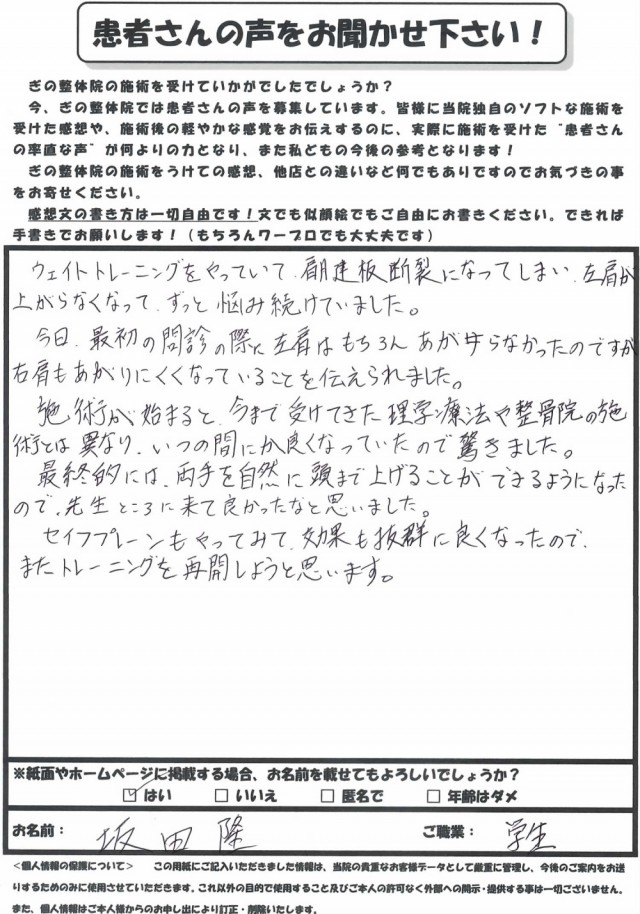 患者さんの声をお聞かせ下さい！
ぎの整体院の施術を受けていかがでしたでしょうか？
今、ぎの整体院では患者さんの声を募集しています。皆様に当院独自のソフトな施術を
受けた感想や、施術後の軽やかな感覚をお伝えするのに、実際に施術を受けた“患者さん
の率直な声”が何よりの力となり、また私どもの今後の参考となります！
ぎの整体院の施術をうけての感想、他店との違いなど何でもありですのでお気づきの事
をお寄せください。
感想文の書き方は一切自由です！文でも似顔絵でもご自由にお書きください。できれば
手書きでお願いします！（もちろんワープロでも大丈夫です）
ウェイトトレーニングをやっていて、肩建板断裂になってしまい、左肩が
上がらなくなって、ずっと悩み続けていました。
今日、最初の問診の際に左肩はもちろんあがらなかったのですが
右肩もあがりにくくなっていることを伝えられました。
施術が始まると、今まで受けてきた理学療法や整骨院の施
術とは異なり、いつの間にか良くなっていたので驚きました。
最終的には、両手を自然に頭まで上げることができるようになった
ので、先生ところに来て良かったなと思いました。
セイフプレーンもやってみて、効果も抜群に良くなったので、
またトレーニングを再開しようと思います。
※紙面やホームページに掲載する場合、お名前を載せてもよろしいでしょうか？
☑ はい □ いいえ □ 匿名で □ 年齢はダメ
お名前： 坂田 隆 ご職業： 学生
＜個人情報の保護について＞ この用紙にご記入いただきました情報は、当院の貴重なお客様データとして厳重に管理し、今後のご案内をお送
りするためのみに使用させていただきます。これ以外の目的で使用すること及びご本人の許可なく外部への開示・提供する事は一切ございません。
また、個人情報はご本人様からのお申し出により訂正・削除いたします。